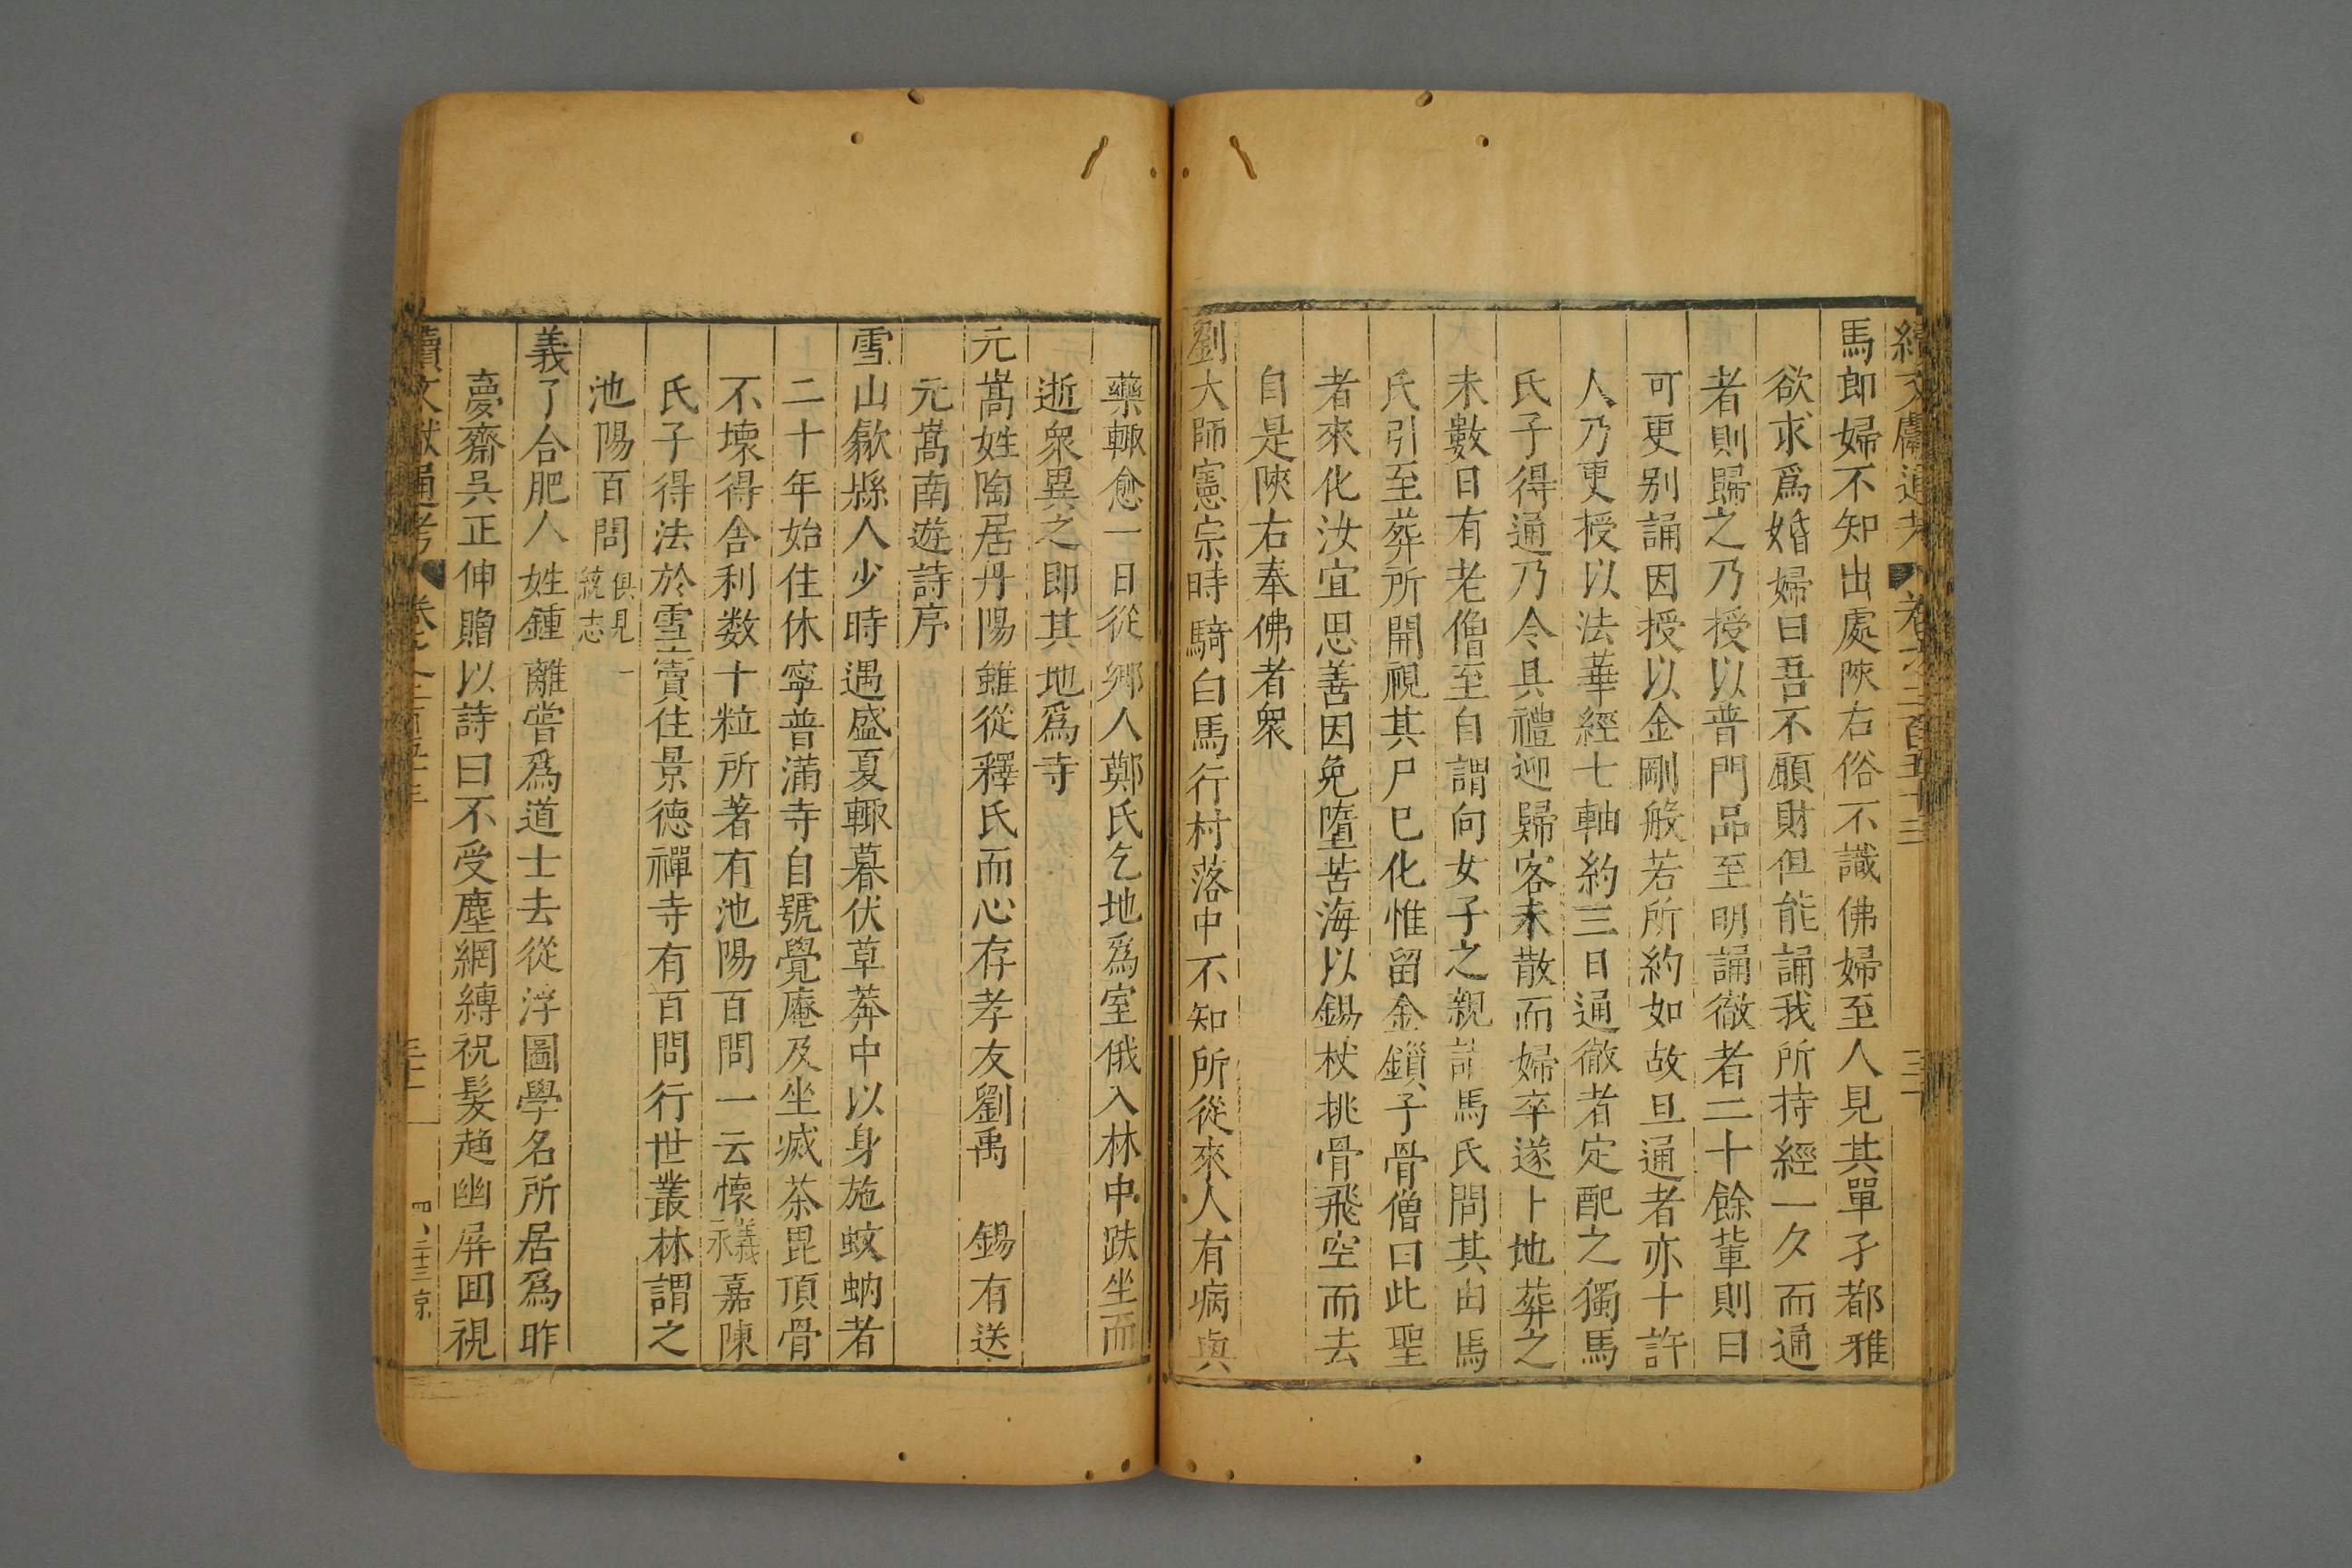 續文獻通考 卷之二百五十三 三十
馬郎婦不知出處陜右俗不識佛婦至人見其單孑都雅
欲求爲婚婦曰吾不願財但能誦我所持經一夕而通
者則歸之乃授以普門品至明誦徹者二十餘軰則曰
可更别誦因授以金剛般若所約如故旦通者亦十許
人乃更授以法華經七軸約三日通徹者定配之獨馬
氏子得通乃令具禮迎歸客未散而婦卒遂卜地葬之
未數日有老僧至自謂向女子之親訪馬氏問其由馬
氏引至葬所開視其尸巳化惟留金鎖子骨僧曰此聖
者來化汝宜思善因免墮苦海以錫杖挑骨飛空而去
自是陜右奉佛者衆
劉大師憲宗時騎白馬行村落中不知所從來人有病與
藥輙愈一日從鄉人鄭氏乞地爲室俄入林中趺坐而
逝衆異之即其地爲寺
元嵩姓陶居丹陽雖從釋氏而心存孝友劉禹 錫有送
元嵩南遊詩序
雪山歙縣人少時遇盛夏輙暮伏草莽中以身施蚊蚋者
二十年始住休寧普滿寺自號覺庵及坐滅茶毘頂骨
不壞得舍利数十粒所著有池陽百問一云懷義永嘉陳
氏子得法於雪竇住景德禪寺有百問行世叢林謂之
池陽百問俱見一統志
義了合肥人姓鍾離嘗爲道士去從浮圖學名所居爲昨
夢齋吳正仲贈以詩曰不受塵網縛祝髮趂幽屏囬視
續文獻通考 卷之二百五十三 三十一 四、二十三 京